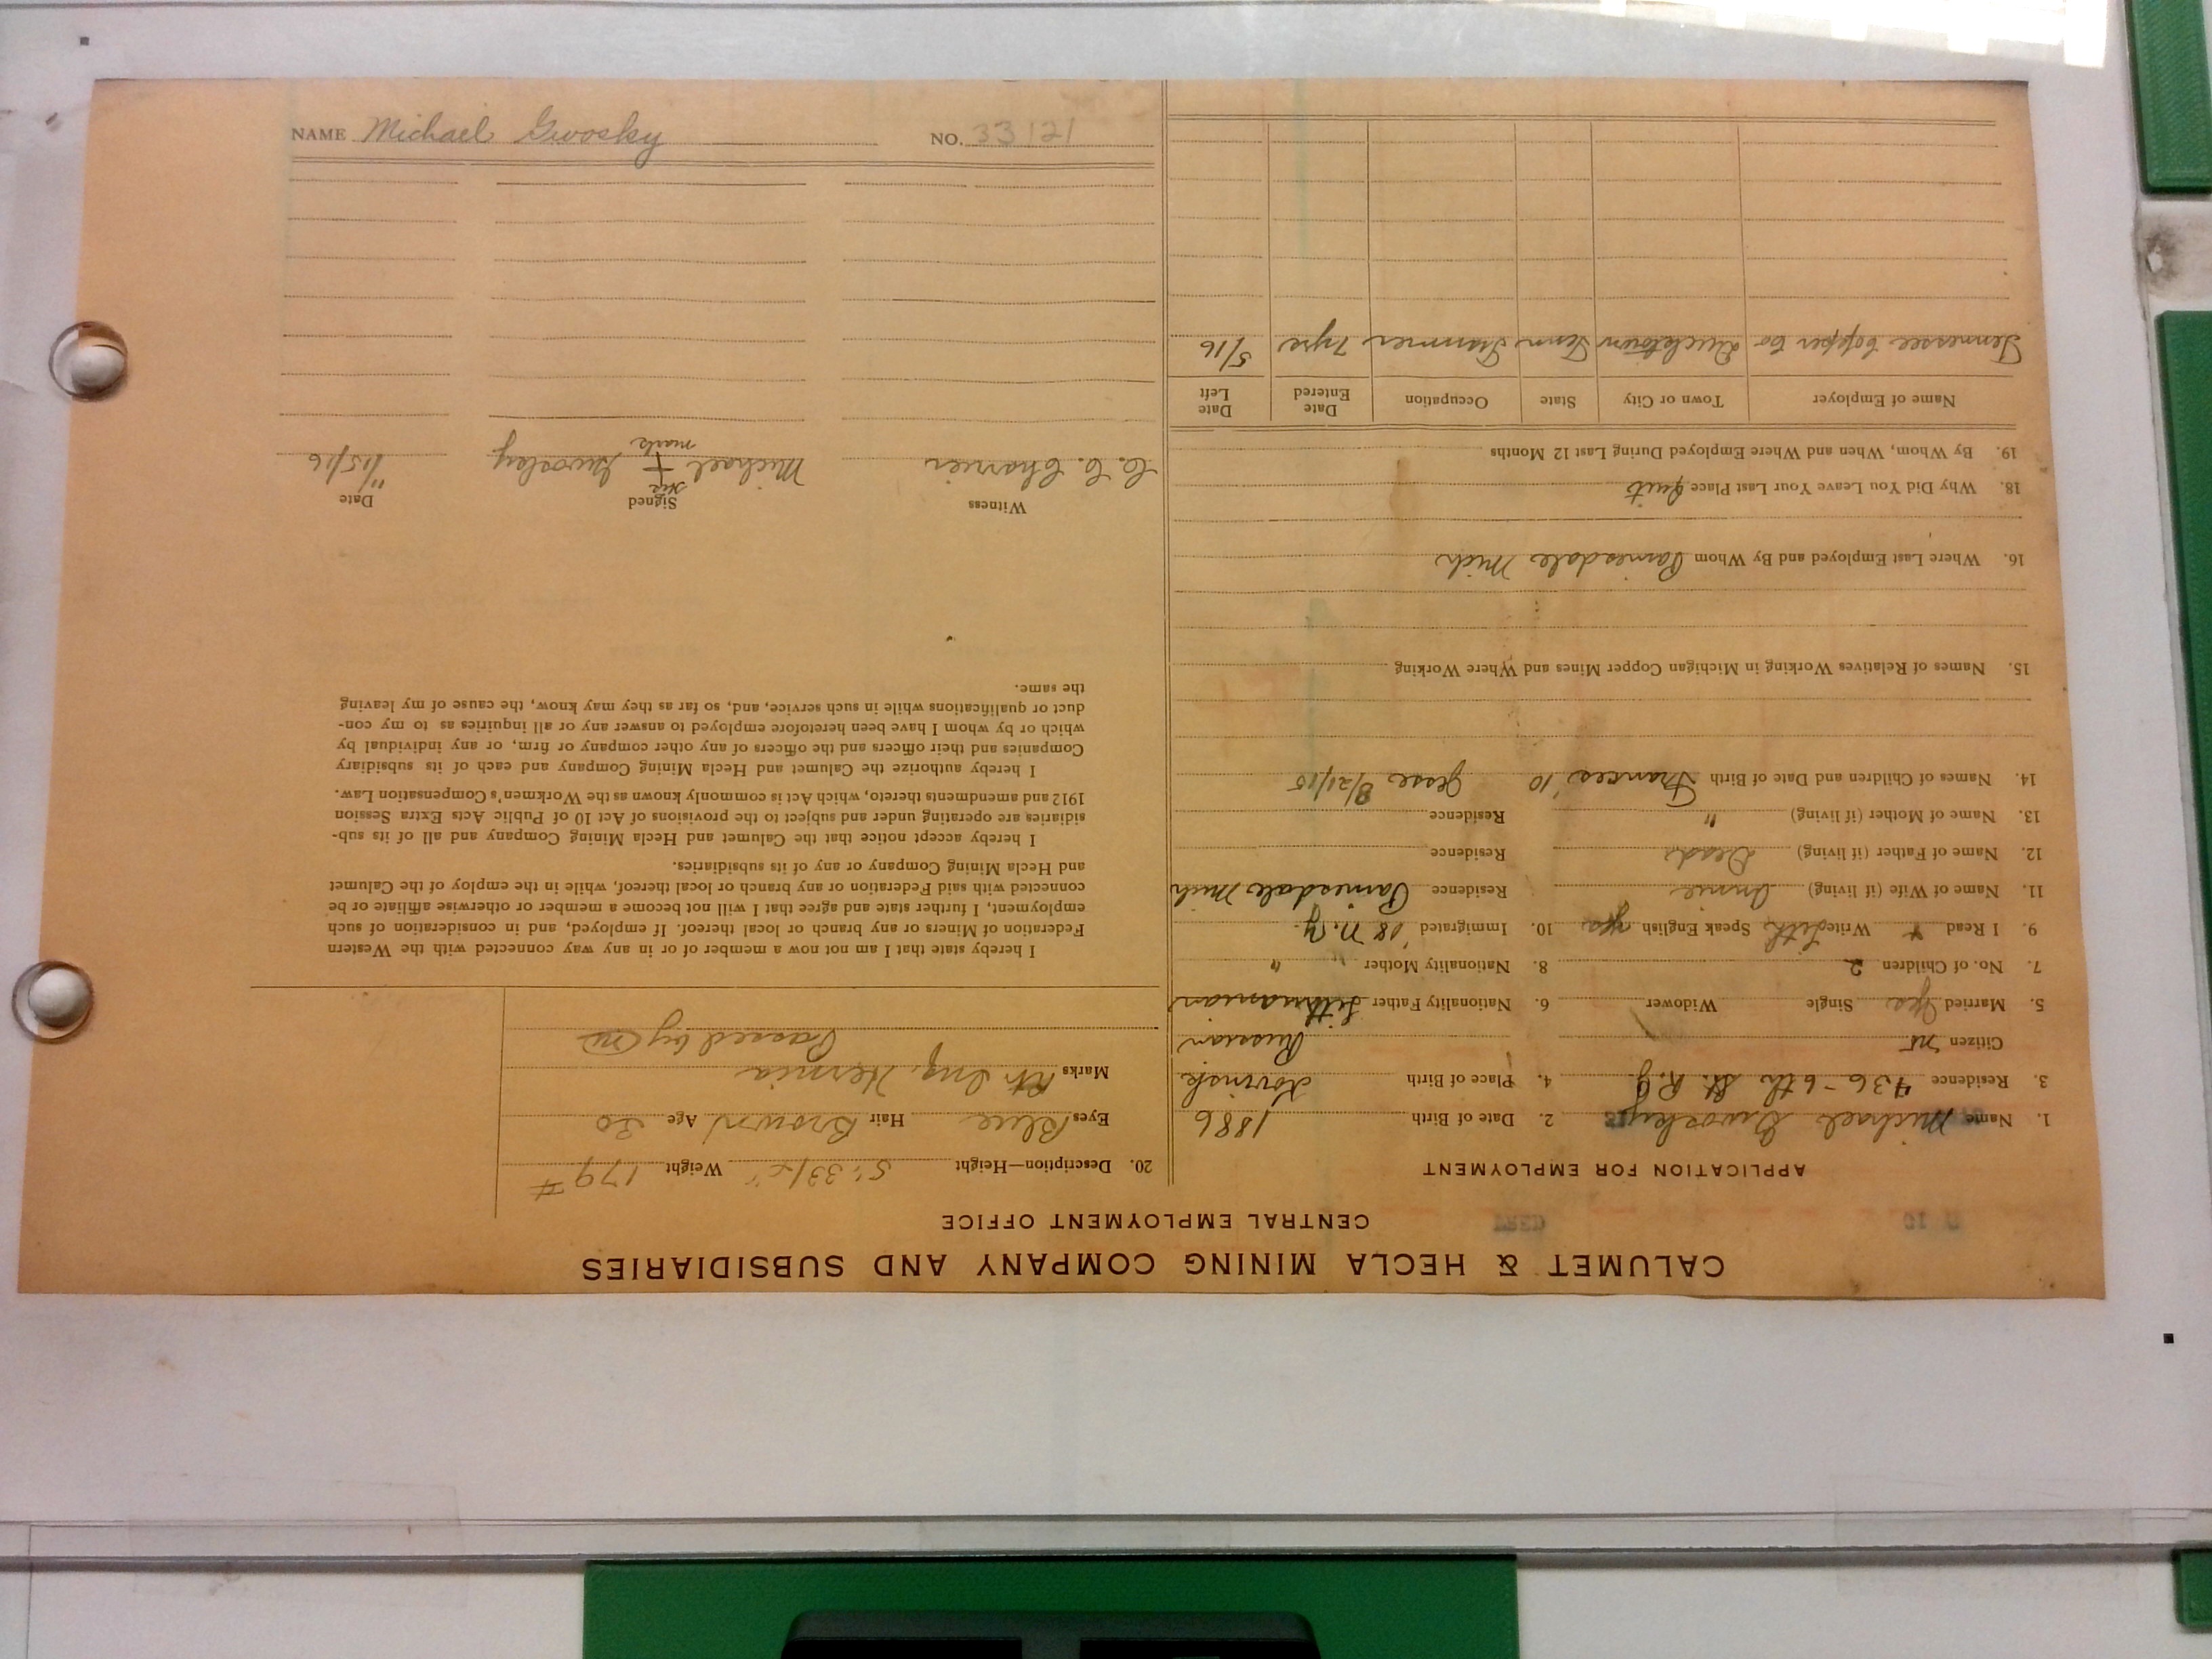 NAME Michael Gwosky NO. 33121
CALUMET & HECLA MINING COMPANY AND SUBSIDIARIES
CENTRAL EMPLOYMENT OFFICE
APPLICATION FOR EMPLOYMENT
1. Name Michael Gwosky 2. Date of Birth 1886
3. Residence 436-6th St. R.J. 4. Place of Birth Kovinsk
Citizen no Russian
5. Married Yes Single Widower 6. Nationality Father Lithuanian
7. No. of Children 2 8. Nationality Mother "
9. I Read + Write Lith Speak English yes 10. Immigrated '08 N.Y.
11. Name of Wife (if living) Annie Residence Painesdale Mich
12. Name of Father (if living) Dead Residence
13. Name of Mother (if living) " Residence
14. Names of Children and Date of Birth Frances '10 Jesse 8/21/15
15. Names of Relatives Working in Michigan Copper Mines and Where Working
16. Where Last Employed and By Whom Painesdale Mich
18. Why Did You Leave Your Last Place Quit
19. By Whom, When and Where Employed During Last 12 Months
Name of Employer Town or City State Occupation Date Entered Date Left
Tennessee Copper Co Ducktown Tenn Trammer 7yrs 5/16
20. Description—Height 5'. 3 3/4" Weight 179 #
Eyes Blue Hair Brown Age 30
Marks Rt Ing. Hernia
Passed by
I hereby state that I am not now a member of or in any way connected with the Western
Federation of Miners or any branch or local thereof. If employed, and in consideration of such
employment, I further state and agree that I will not become a member or otherwise affiliate or be
connected with said Federation or any branch or local thereof, while in the employ of the Calumet
and Hecla Mining Company or any of its subsidiaries.
I hereby accept notice that the Calumet and Hecla Mining Company and all of its sub-
sidiaries are operating under and subject to the provisions of Act 10 of Public Acts Extra Session
1912 and amendments thereto, which Act is commonly known as the Workmen's Compensation Law.
I hereby authorize the Calumet and Hecla Mining Company and each of its subsidiary
Companies and their officers and the officers of any other company or firm, or any individual by
which or by whom I have been heretofore employed to answer any or all inquiries as to my con-
duct or qualifications while in such service, and, so far as they may know, the cause of my leaving
the same.
Witness Signed Date
C. C. Charrier Michael his + mark Gwosky 11/15/16